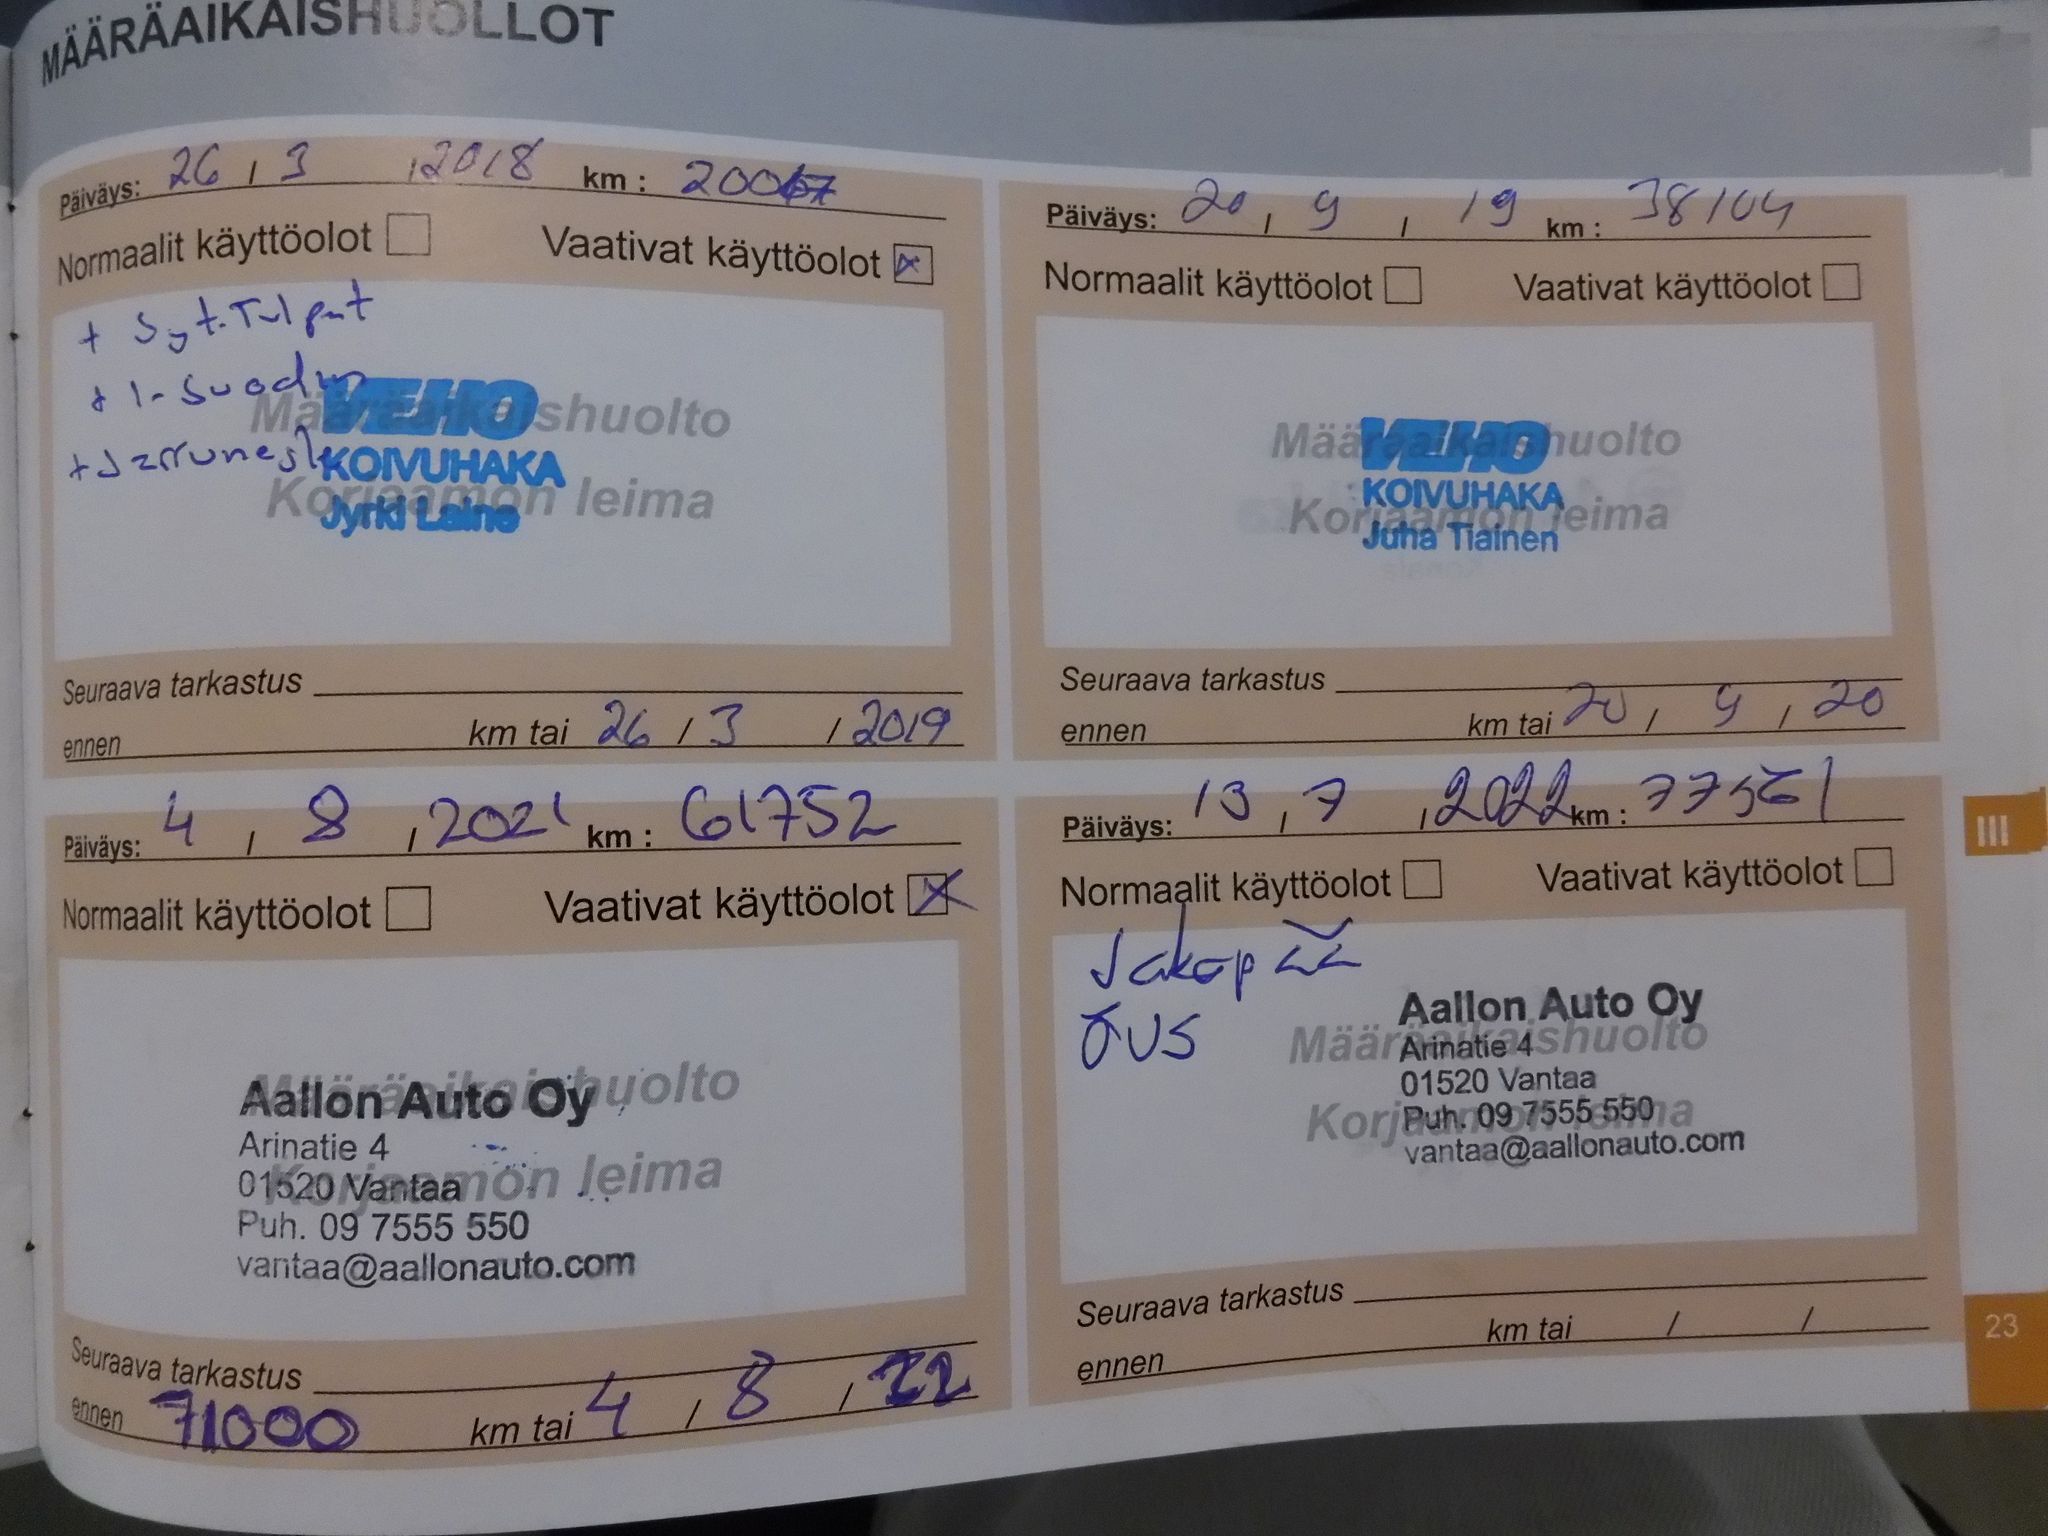 MÄÄRÄAIKAISHUOLLOT
Päiväys: 26 / 3 / 2018 km : 20067
Normaalit käyttöolot Vaativat käyttöolot x
+ Syt.Tulpat
+ I-Suodin
+ Jarruneste
Määräaikaishuolto
Korjaamon leima
VEHO
KOIVUHAKA
Jyrki Laine
Seuraava tarkastus
ennen km tai 26 / 3 / 2019
Päiväys: 20 / 9 / 19 km : 38104
Normaalit käyttöolot Vaativat käyttöolot
Määräaikaishuolto
Korjaamon leima
VEHO
KOIVUHAKA
Juha Tiainen
Seuraava tarkastus
ennen km tai 20 / 9 / 20
Päiväys: 4 / 8 / 2021 km : 61752
Normaalit käyttöolot Vaativat käyttöolot x
Määräaikaishuolto
Korjaamon leima
Aallon Auto Oy
Arinatie 4
01520 Vantaa
Puh. 09 7555 550
vantaa@aallonauto.com
Seuraava tarkastus
ennen 71000 km tai 4 / 8 / 22
Päiväys: 13 / 7 / 2022 km : 77561
Normaalit käyttöolot Vaativat käyttöolot
Jakopää
Määräaikaishuolto
Korjaamon leima
Aallon Auto Oy
Arinatie 4
01520 Vantaa
Puh. 09 7555 550
vantaa@aallonauto.com
Seuraava tarkastus
ennen km tai / /
III
23